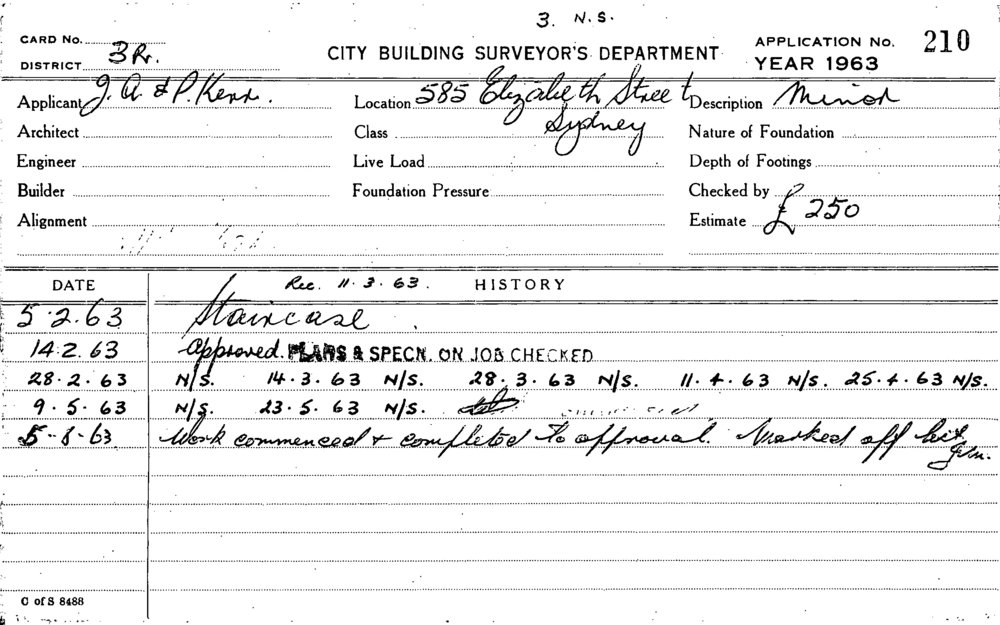 3. N.S.
CARD No.
DISTRICT 3R.
CITY BUILDING SURVEYOR'S DEPARTMENT
APPLICATION No. 210
YEAR 1963
Applicant J. A. & P. Kerr. Location 585 Elizabeth Street Description Minor
Architect Class Sydney Nature of Foundation
Engineer Live Load Depth of Footings
Builder Foundation Pressure Checked by
Alignment Estimate £250
DATE Rec. 11.3.63. HISTORY
5.2.63 Staircase.
14.2.63 Approved. PLANS & SPECN. ON JOB CHECKED
28.2.63 N/S. 14.3.63 N/S. 28.3.63 N/S. 11.4.63 N/S. 25.4.63 N/S.
9.5.63 N/S. 23.5.63 N/S.
5.8.63 Work commenced & completed to approval. Marked off
C of S 8488